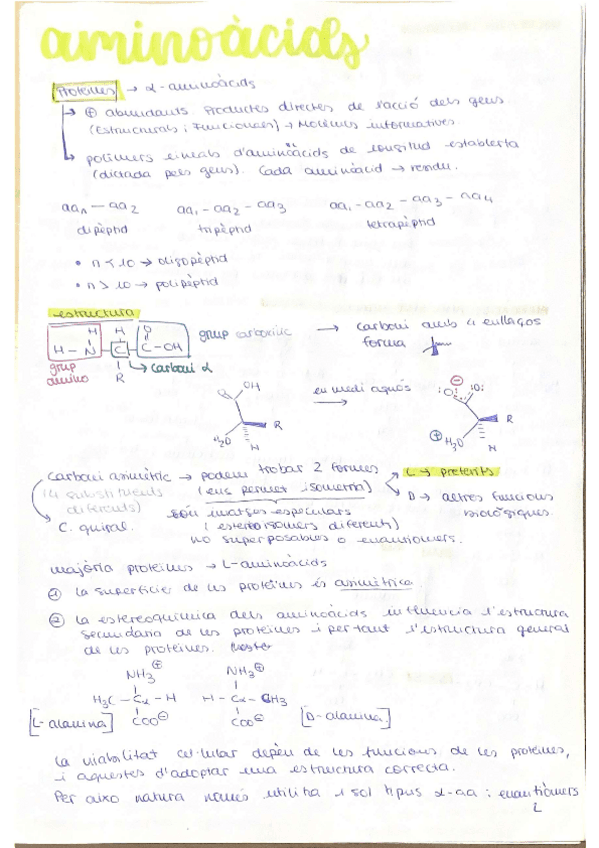 aminoàcids
Proteïnes → α-aminoàcids
→ ⊕ abundants Productes directes de l'acció dels gens
(Estructurals i Funcionals) → Molècules informatives.
→ polímers lineals d'aminoàcids de longitud establerta
(dictada pels gens). Cada aminoàcid → residu.
aa₁ — aa₂ aa₁ - aa₂ - aa₃ aa₁ - aa₂ - aa₃ - aa₄
dipèptid tripèptid tetrapèptid
• n < 10 → oligopèptid
• n > 10 → polipèptid
estructura
H H O
H - N - C - C - OH grup carboxílic → carboni amb 4 enllaços
grup amino R → carboni α forma
O OH en medi aquós ⊖ :O: :O:
R → R
H ⊕ H₃O H
carboni asimètric → podem trobar 2 formes L → proteïns
(4 substituents (ens permet isomeria) D → altres funcions
diferents) són imatges especulars biològiques.
C. quiral. (estereoisòmers diferents)
no superposables o enantiòmers.
majoria proteïnes → L-aminoàcids
① La superfície de les proteïnes és asimètrica.
② La estereoquímica dels aminoàcids influencia l'estructura
secundària de les proteïnes i per tant l'estructura general
de les proteïnes.
NH₃⊕ NH₃⊕
H₃C - Cα - H H - Cα - CH₃
[L-alanina] COO⊖ COO⊖ [D-alanina]
La viabilitat cel·lular depèn de les funcions de les proteïnes,
i aquestes d'adoptar una estructura correcta.
Per això natura només utilitza 1 sol tipus α-aa : enantiòmers
L